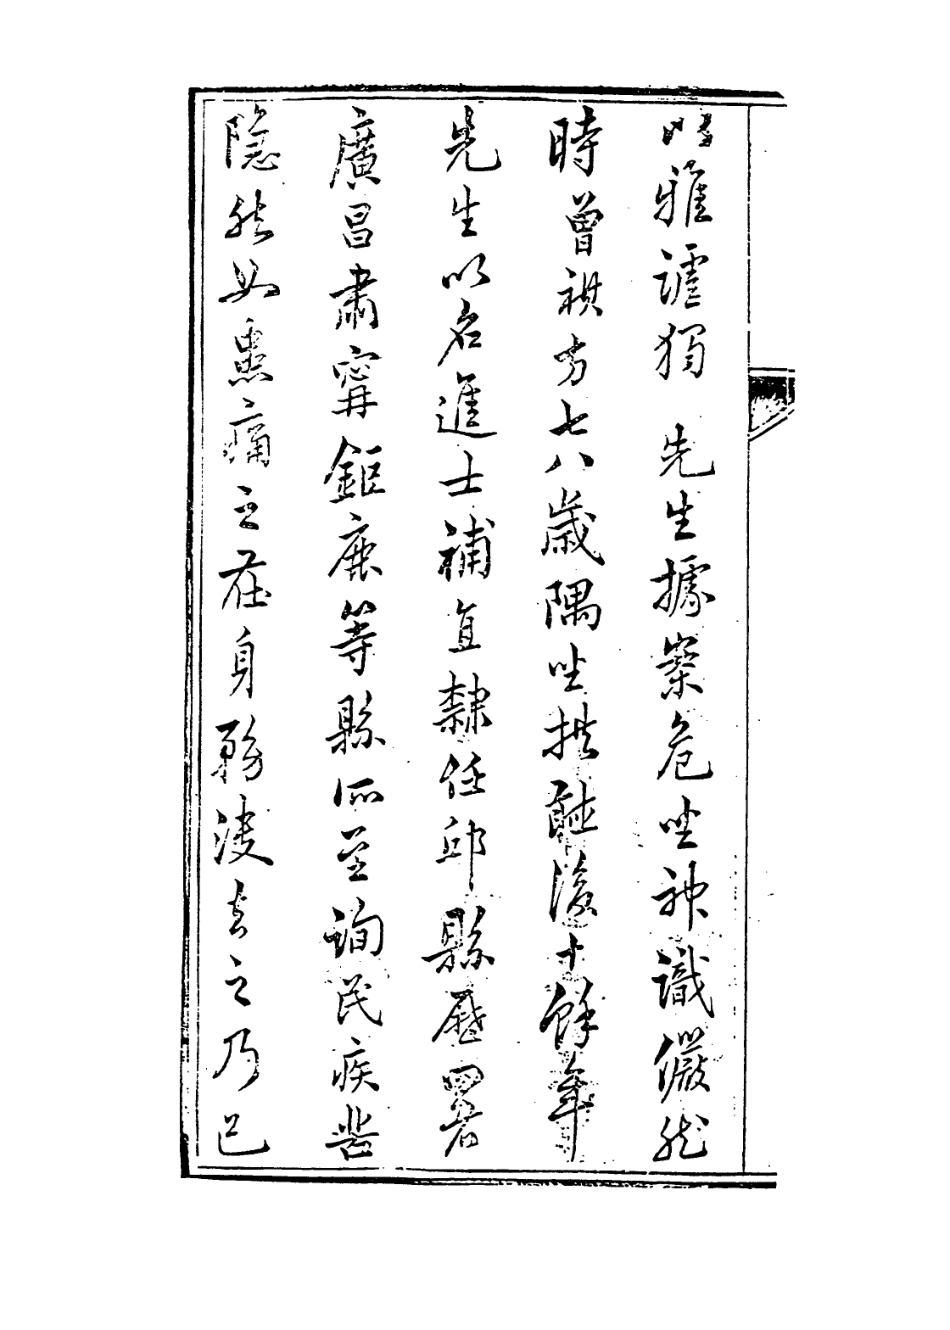 雅謔獨 先生據案危坐神識儼然
時曾祺方七八歲隅坐拱聽後十餘年
先生以名進士補直隸任邱縣歷署
廣昌肅甯鉅鹿等縣所至詢民疾
隱然如患痛之在身務去之乃已